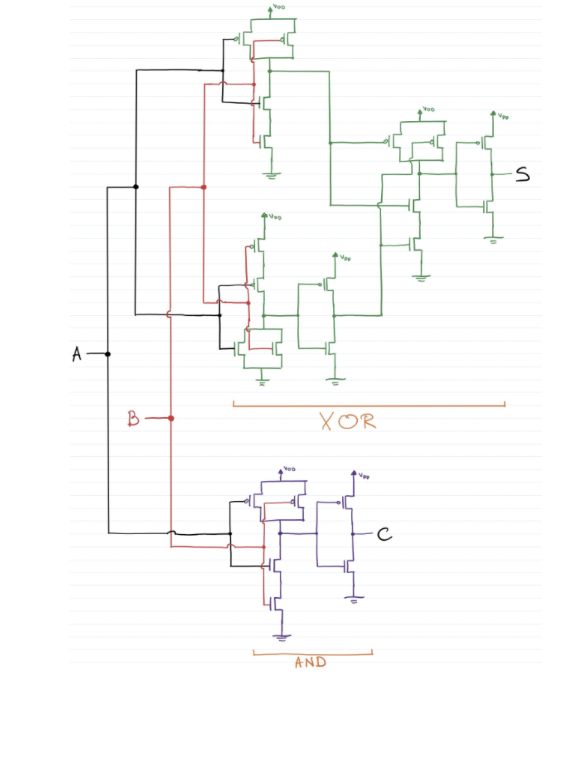 VDD
VDD
VDD
S
VDD
VDD
A
B
XOR
VDD
VDD
C
AND